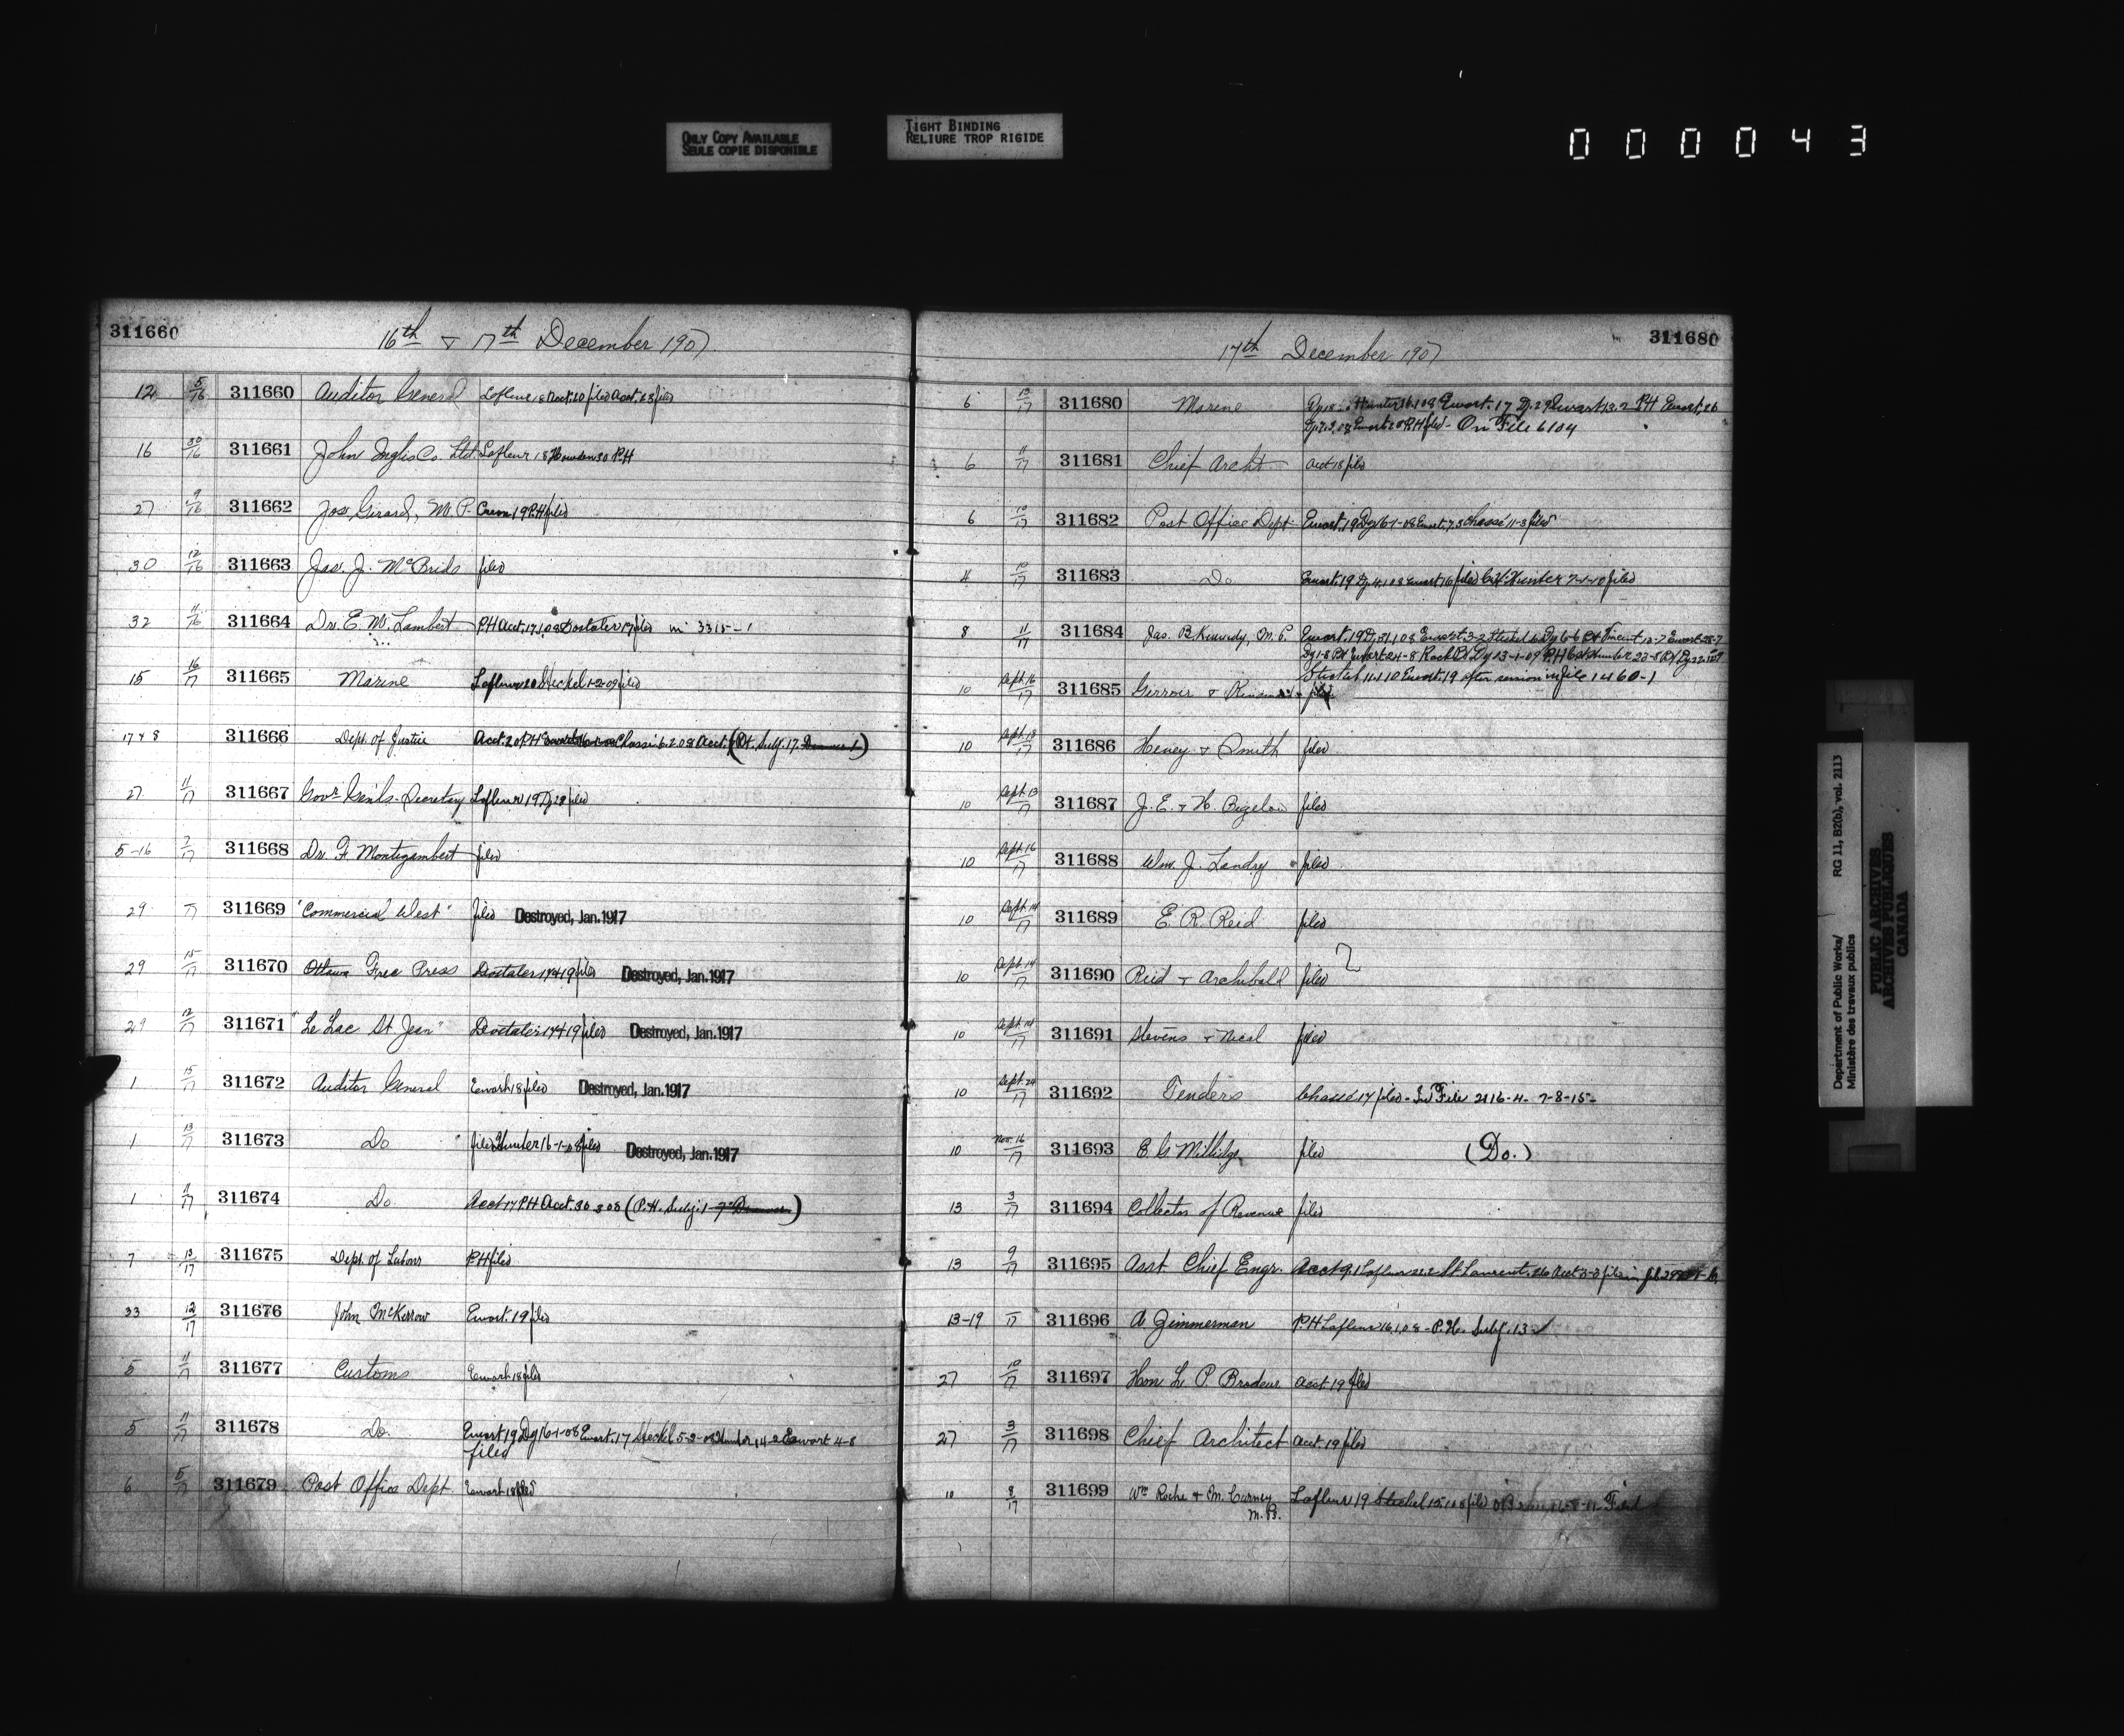 ONLY COPY AVAILABLE
SEULE COPIE DISPONIBLE
TIGHT BINDING
RELIURE TROP RIGIDE
000043
311660
16th & 17th December 1907
12 5/16 311660 Auditor General Lafleur 18 Acct. 20 filed Acct. 23 filed
16 30/16 311661 John Inglis Co. Ltd. Lafleur 18 Howden 30 P.H
27 9/16 311662 Jos. Girard, M.P. 19 P.H filed
30 12/16 311663 Jas. J. McBride filed
32 11/16 311664 Dr. E. M. Lambert P.H Acct. 17.1.08 Dostaler 17 filed in 3315-1
15 16/17 311665 Marine Lafleur 20 Steckel 1-2-09 filed
17 & 8 311666 Dept. of Justice Acct. 20 P.H Chassé 6.2.08 Acct. (Pt. Subj. 17)
27 11/17 311667 Govr. Genl's. Secretary Lafleur 19 Dy 29 filed
5-16 7/17 311668 Dr. F. Montizambert filed
29 /17 311669 "Commercial West" filed Destroyed, Jan. 1917
29 15/17 311670 Ottawa Free Press Dostaler 17 & 19 filed Destroyed, Jan. 1917
29 12/17 311671 "Le Lac St Jean" Dostaler 17 & 19 filed Destroyed, Jan. 1917
1 15/17 311672 Auditor General Ewart 18 filed Destroyed, Jan. 1917
1 13/17 311673 Do filed Hunter 16-1-08 filed Destroyed, Jan. 1917
1 11/17 311674 Do. Acct 17 P.H Acct. 30 3 08 (P.H. Subj: 1)
7 13/17 311675 Dept. of Labour P.H filed
33 12/17 311676 John McKerrow Ewart. 19 filed
5 11/17 311677 Customs Ewart 18 filed
5 11/17 311678 Do. Ewart 19 Dy 16-1-08 Ewart. 17 Steckel 5-2-08 Hunter 14-2 Ewart 4-8
filed
6 5/17 311679 Post Office Dept. Ewart 18 filed
311680
17th December 1907
6 13/17 311680 Marine Hunter 16.1.08 Ewart. 17 Dy. 29 Ewart 13.2 P.H Ewart. 26
Ewart 20 P.H filed - On File 6104
6 11/17 311681 Chief Archt Acct 18 filed
6 10/17 311682 Post Office Dept. Ewart. 19 Dy 16-1-08 Ewart. 7.3 Chassé 11-3 filed
4 10/17 311683 Do Ewart. 19 Dy 4.1.08 Ewart 16 filed Hunter 7-1-10 filed
8 11/17 311684 Jas. B. Kennedy, M.P. Ewart. 19 Dy. 31.1.08 Ewart. 3-2 Steckel 6 Dy 6-6 P.H Vincent 13-7 Ewart 28-7
Dy 1-8 P.H Ewart 24-8 Rack P.H Dy 13-1-09 P.H Hunter 23-8
Steckel 11.1.10 Ewart. 19 after session in file 1460-1
10 Sept. 16/17 311685 Girroir & filed
10 Sept. 13/17 311686 Heney & Smith filed
10 Sept. 13/17 311687 J. E. & H. Bigelow filed
10 Sept. 16/17 311688 Wm. J. Landry filed
10 Sept. 14/17 311689 E. R. Reid filed
10 Sept. 14/17 311690 Reid & Archibald filed
10 Sept. 14/17 311691 Stevens & Neal filed
10 Sept. 24/17 311692 Tenders Chassé 17 filed - In File 2116-4- 7-8-15-
10 Nov. 16/17 311693 E. G. Millidge filed (Do.)
13 3/17 311694 Collector of Revenue filed
13 9/17 311695 Asst. Chief Engr. Acct 9.1 Lafleur 22.2 St Laurent. 26 Acct 3-3 filed in file
13-19 /17 311696 A Zimmerman P.H Lafleur 16.1.08 - P.H. Subj. 13
27 10/17 311697 Hon L. P. Brodeur Acct 19 filed
27 3/17 311698 Chief Architect Acct. 19 filed
10 8/17 311699 Wm Roche & M. Carney Lafleur 19 Steckel 15.1.08 filed
M.P.
Department of Public Works/ RG 11, B2(b), vol. 2113
Ministère des travaux publics
PUBLIC ARCHIVES
ARCHIVES PUBLIQUES
CANADA